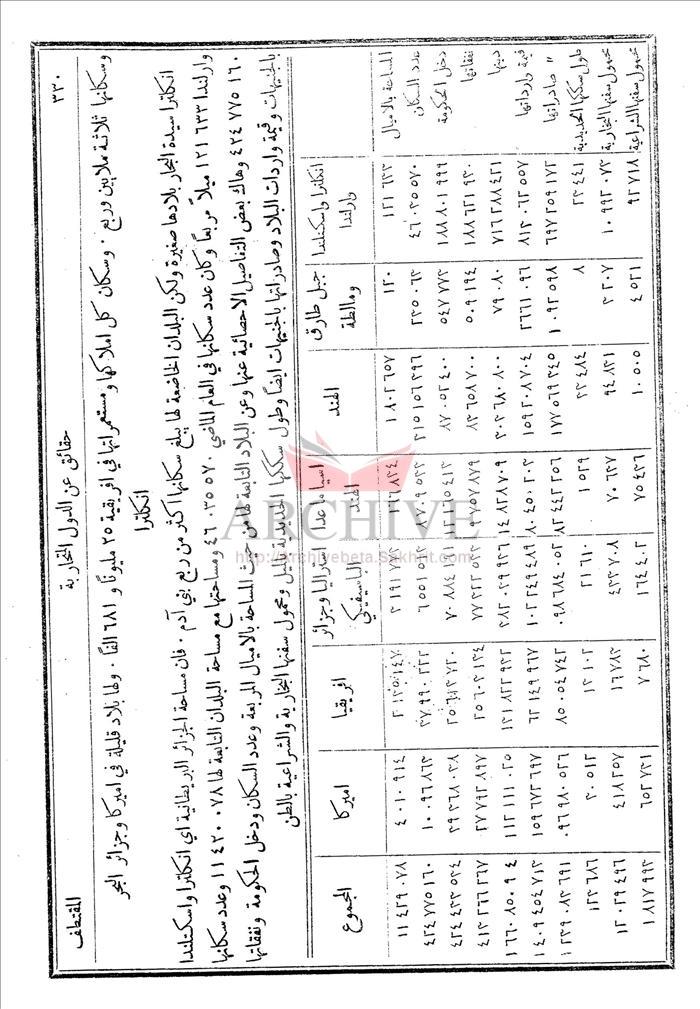 ٣٣٠ حقائق عن الدول التجارية المقتطف
وسكانها ثلاثة ملايين وربع . وسكان كل املاكها ومستعمراتها في افريقية ٣٥ مليوناً و ٦٨١ الفاً . ولها بلاد قليلة في اميركا وجزائر البحر
انكلترا
انكلترا سيدة البحار بلادها صغيرة ولكن البلدان الخاضعة لها يبلغ سكانها أكثر من ربع بني آدم . فان مساحة الجزائر البريطانية اي انكلترا واسكتلندا
وارلندا ١٢١ ٦٣٣ ميلاً مربعاً وكان عدد سكانها في العام الماضي ٤٦ ٠٣٥ ٥٧٠ ومساحتها مع مساحة البلدان التابعة لها وعدد سكانها
٤٢٤ ٧٧٥ ١٦٠ وهاك بعض التفاصيل الاحصائية عنها وعن البلاد التابعة لها من حيث المساحة بالاميال المربعة وعدد السكان ودخل الحكومة ونفقاتها
بالجنيهات وقيمة واردات البلاد وصادراتها بالجنيهات ايضاً وطول سككها الحديدية بالميل ومحمول سفنها التجارية والشراعية بالطن
انكلترا واسكتلندا وارلندا جبل طارق ومالطة الهند اسيا ما عدا الهند استراليا وجزائر الباسيفيكي افريقيا اميركا المجموع
المساحة بالاميال ١٢١ ٦٣٣ ١٢٠ ١ ٨٠٢ ٦٥٧ ١٦٦ ٨٣٤ ٤ ٠١٠ ٩١٤ ١١ ٤٢٩ ٠٧٨
عدد السكان ٤٦ ٠٣٥ ٥٧٠ ٢٣٥ ٠٦٣ ٣١٥ ١٥٦ ٣٩٦ ١٠ ٠٩٦ ٨٦٣ ٤٢٤ ٧٧٥ ١٦٠
دخل الحكومة ١٨٨ ٨٠١ ٩٩٩ ٥٤٧ ٧٧٣ ٨٧ ٠٥٢ ٤٠٠ ٣٩ ٣٦٨ ٠٣٨ ٤٢٤ ٤٣٣ ٥٣٤
نفقاتها ١٨٨ ٦٢١ ٩٣٠ ٥٠٩ ١٩٤ ٨٣ ٦٥٨ ٧٠٠ ٩ ٧٥٧ ٨٧٩ ٧٧ ٣٢٢ ٥٣٣ ٢٥ ٦٠٣ ١٣٤ ٣٧ ٧٩٣ ٨٩٧ ٤١٣ ٢٦٦ ٢٦٧
دينها ٧١٦ ٢٨٨ ٤٢١ ٧٩ ٠٨٠ ٣٠٣ ٦٨٠ ٨٠٠ ١٤ ٨٣٨ ٧٠٩ ٣٨٣ ٠٢٩ ٩٣٦ ١٣١ ٨٢٢ ٩٣٣ ١١٢ ١١١ ٠٢٥
قيمة وارداتها ٨١٣ ٠٦٣ ٥٥٧ ٢ ٦٦١ ٠٩٦ ١٥٩ ٣٠٨ ٧٠٤ ٨٠ ٤٥٠ ٢٠٣ ١٠٢ ٣٤٩ ٤٨٩ ٦٢ ١٤٩ ٩٦٧ ١٥٩ ٦٧٣ ٦٩٧ ١ ٤٠٩ ٤٥٤ ٧١٣
" صادراتها ٦٩٧ ٣٥٩ ١٧٢ ١ ٠٩٣ ٥٩٨ ١٧٧ ٥٦٩ ٣٤٥ ٩٨ ٦٨٤ ٠٥٣ ٨٥ ٠٥٤ ٧٤٣ ٩٦ ٩٨٠ ٥٣٦ ١ ٢٣٩ ٠٨٣ ٦٩١
طول سككها الحديدية ٢٣ ٤٤١ ٨ ٣٣ ٤٨٤ ١ ٥٣٩ ٢١ ٦١٠ ١٣ ١٠٢ ٣٠ ٥١٣ ١٢٣ ٦٨٦
محمول سفنها التجارية ١٠ ٩٩٣ ٠٧٣ ٣ ٢٠٧ ٩٤ ٨٣١ ٧٠ ٦٣٧ ٤٣٣ ٧٠٨ ١٦ ٧٨٣ ٤١٨ ٢٥٧ ١٢ ٠٢٩ ٤٩٦
محمول سفنها الشراعية ٩٢ ٧١٨ ٤ ٥٣١ ١٠ ٥٠٥ ٧٥ ٤٣٦ ١٦٤ ٤٠٢ ٨ ٦٨٠ ٦٥٣ ٧٣١ ١ ٨١٧ ٩٩٣
ARCHIVE
http://Archivebeta.Sakhrit.com